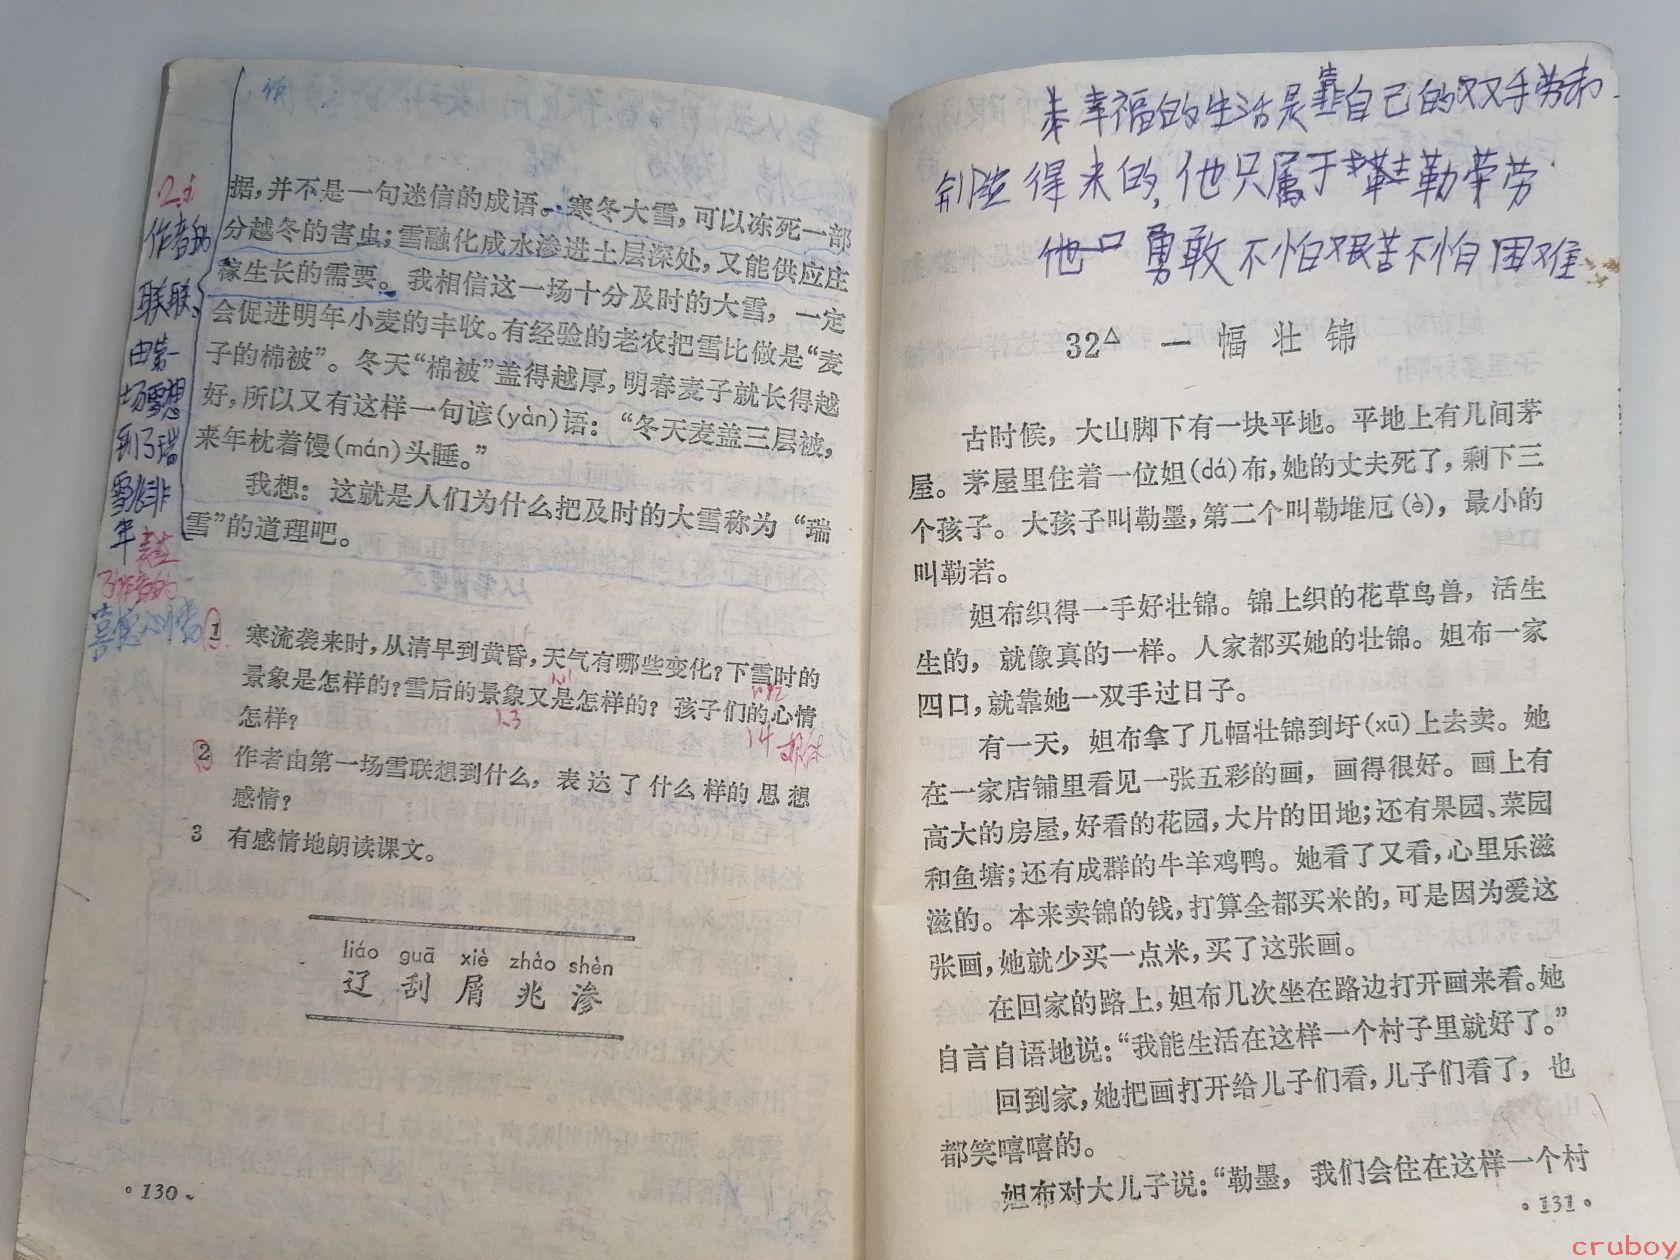 2主
作者的
联联、
由第一
场雪想
到了瑞
雪兆
年
据，并不是一句迷信的成语。寒冬大雪，可以冻死一部
分越冬的害虫；雪融化成水渗进土层深处，又能供应庄
稼生长的需要。我相信这一场十分及时的大雪，一定
会促进明年小麦的丰收。有经验的老农把雪比做是“麦
子的棉被”。冬天“棉被”盖得越厚，明春麦子就长得越
好，所以又有这样一句谚(yàn)语：“冬天麦盖三层被，
来年枕着馒(mán)头睡。”
我想：这就是人们为什么把及时的大雪称为“瑞
雪”的道理吧。
1 寒流袭来时，从清早到黄昏，天气有哪些变化？下雪时的
景象是怎样的？雪后的景象又是怎样的？孩子们的心情
怎样？
2 作者由第一场雪联想到什么，表达了什么样的思想
感情？
3 有感情地朗读课文。
liáo guā xiè zhào shèn
辽 刮 屑 兆 渗
·130·
幸福的生活是靠自己的双手劳和
得来的，他只属于勤劳
勇敢不怕艰苦不怕困难
32△ 一幅壮锦
古时候，大山脚下有一块平地。平地上有几间茅
屋。茅屋里住着一位妲(dá)布，她的丈夫死了，剩下三
个孩子。大孩子叫勒墨，第二个叫勒堆厄(è)，最小的
叫勒若。
妲布织得一手好壮锦。锦上织的花草鸟兽，活生
生的，就像真的一样。人家都买她的壮锦。妲布一家
四口，就靠她一双手过日子。
有一天，妲布拿了几幅壮锦到圩(xū)上去卖。她
在一家店铺里看见一张五彩的画，画得很好。画上有
高大的房屋，好看的花园，大片的田地；还有果园、菜园
和鱼塘；还有成群的牛羊鸡鸭。她看了又看，心里乐滋
滋的。本来卖锦的钱，打算全都买米的，可是因为爱这
张画，她就少买一点米，买了这张画。
在回家的路上，妲布几次坐在路边打开画来看。她
自言自语地说：“我能生活在这样一个村子里就好了。”
回到家，她把画打开给儿子们看，儿子们看了，也
都笑嘻嘻的。
妲布对大儿子说：“勒墨，我们会住在这样一个村
·131·
cruboy